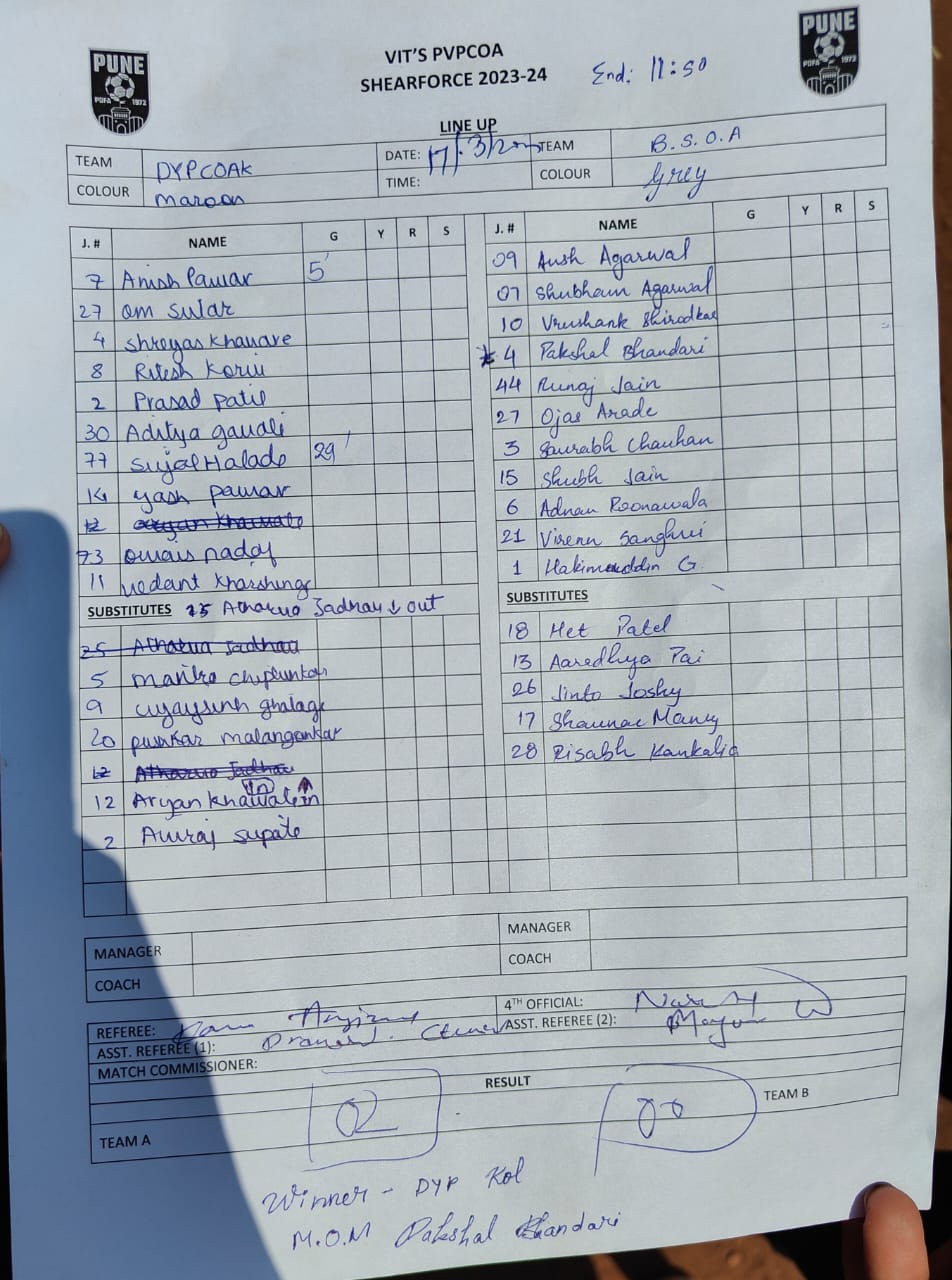 PUNE
PDFA 1972
VIT'S PVPCOA
SHEARFORCE 2023-24
End: 11:50
PUNE
PDFA 1972
LINE UP
TEAM DYPCOAK DATE: 17/3/ TEAM B.S.O.A
COLOUR maroon TIME: COLOUR Grey
J. # NAME G Y R S
7 Anish Pawar 5'
27 om sutar
4 shreyas khanave
8 Ritesh
2 Prasad patil
30 Aditya gavali
77 Sujal Halade 29'
14 yash pawar
12
73 owais naddf
11 vedant kharshinge
SUBSTITUTES 25 Atharva Jadhav ↓ out
25 Atharva Jadhav
5
9 ghalage
20 malangankar
12 Atharva Jadhav
12 Aryan khawale in
in
2 Amraj supate
J. # NAME G Y R S
09 Aush Agarwal
07 Shubham Agarwal
10 Vrushank Shirodkar
4 Pakshal Bhandari
44 Runaj Jain
27 Ojas Arade
3 Saurabh Chauhan
15 Shubh Jain
6 Adnan Poonawala
21 Virenn Sanghvi
1 Hakimuddin G.
SUBSTITUTES
18 Het Patel
13 Aaredhya Pai
26 Jinto Joshy
17 Shaunac
28 Risabh Kankalia
MANAGER MANAGER
COACH COACH
REFEREE: 4TH OFFICIAL:
ASST. REFEREE (1): ASST. REFEREE (2):
MATCH COMMISSIONER:
RESULT
TEAM A 02 00 TEAM B
Winner - DYP Kol
M.O.M Pakshal Bhandari